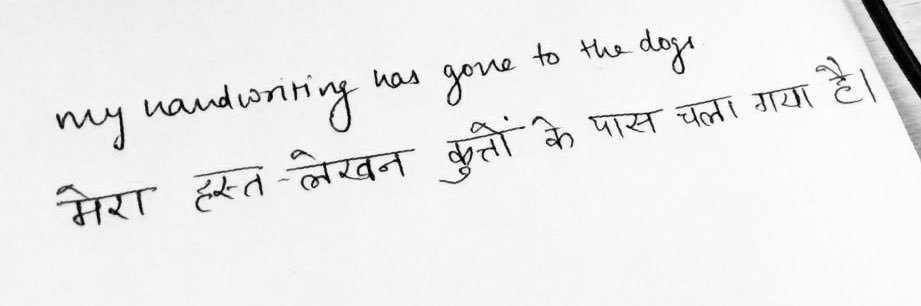 my handwriting has gone to the dogs
मेरा हस्त-लेखन कुत्तों के पास चला गया है।